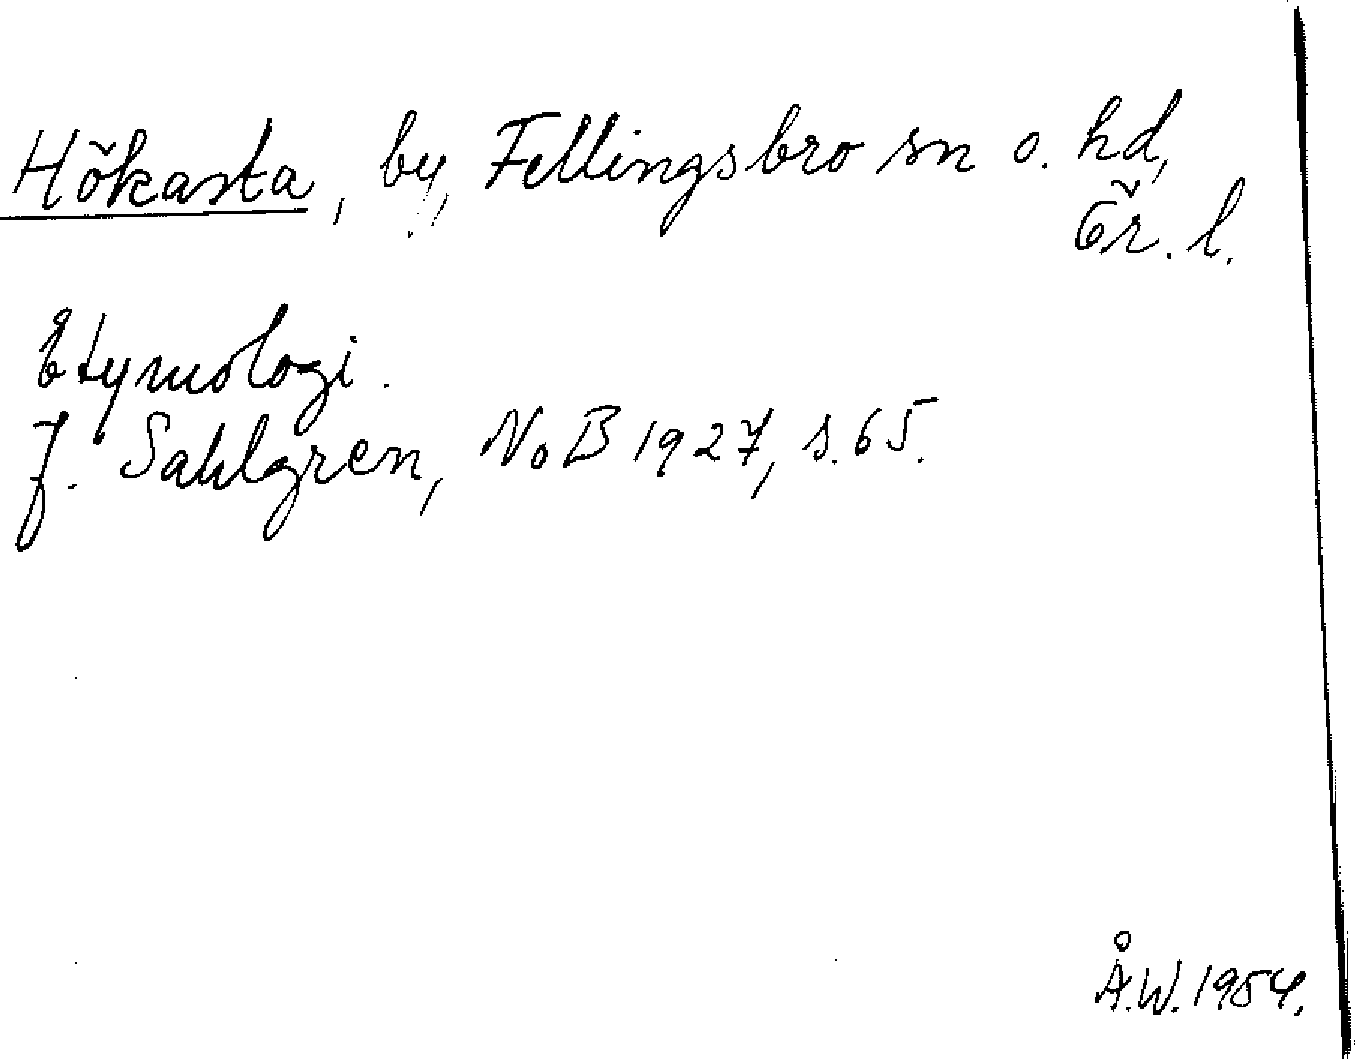 Hökasta, by, Fellingsbro sn o. hd,
Ör. l.
Etymologi.
J. Sahlgren, NoB 1927, s. 65.
Å.W. 1954.